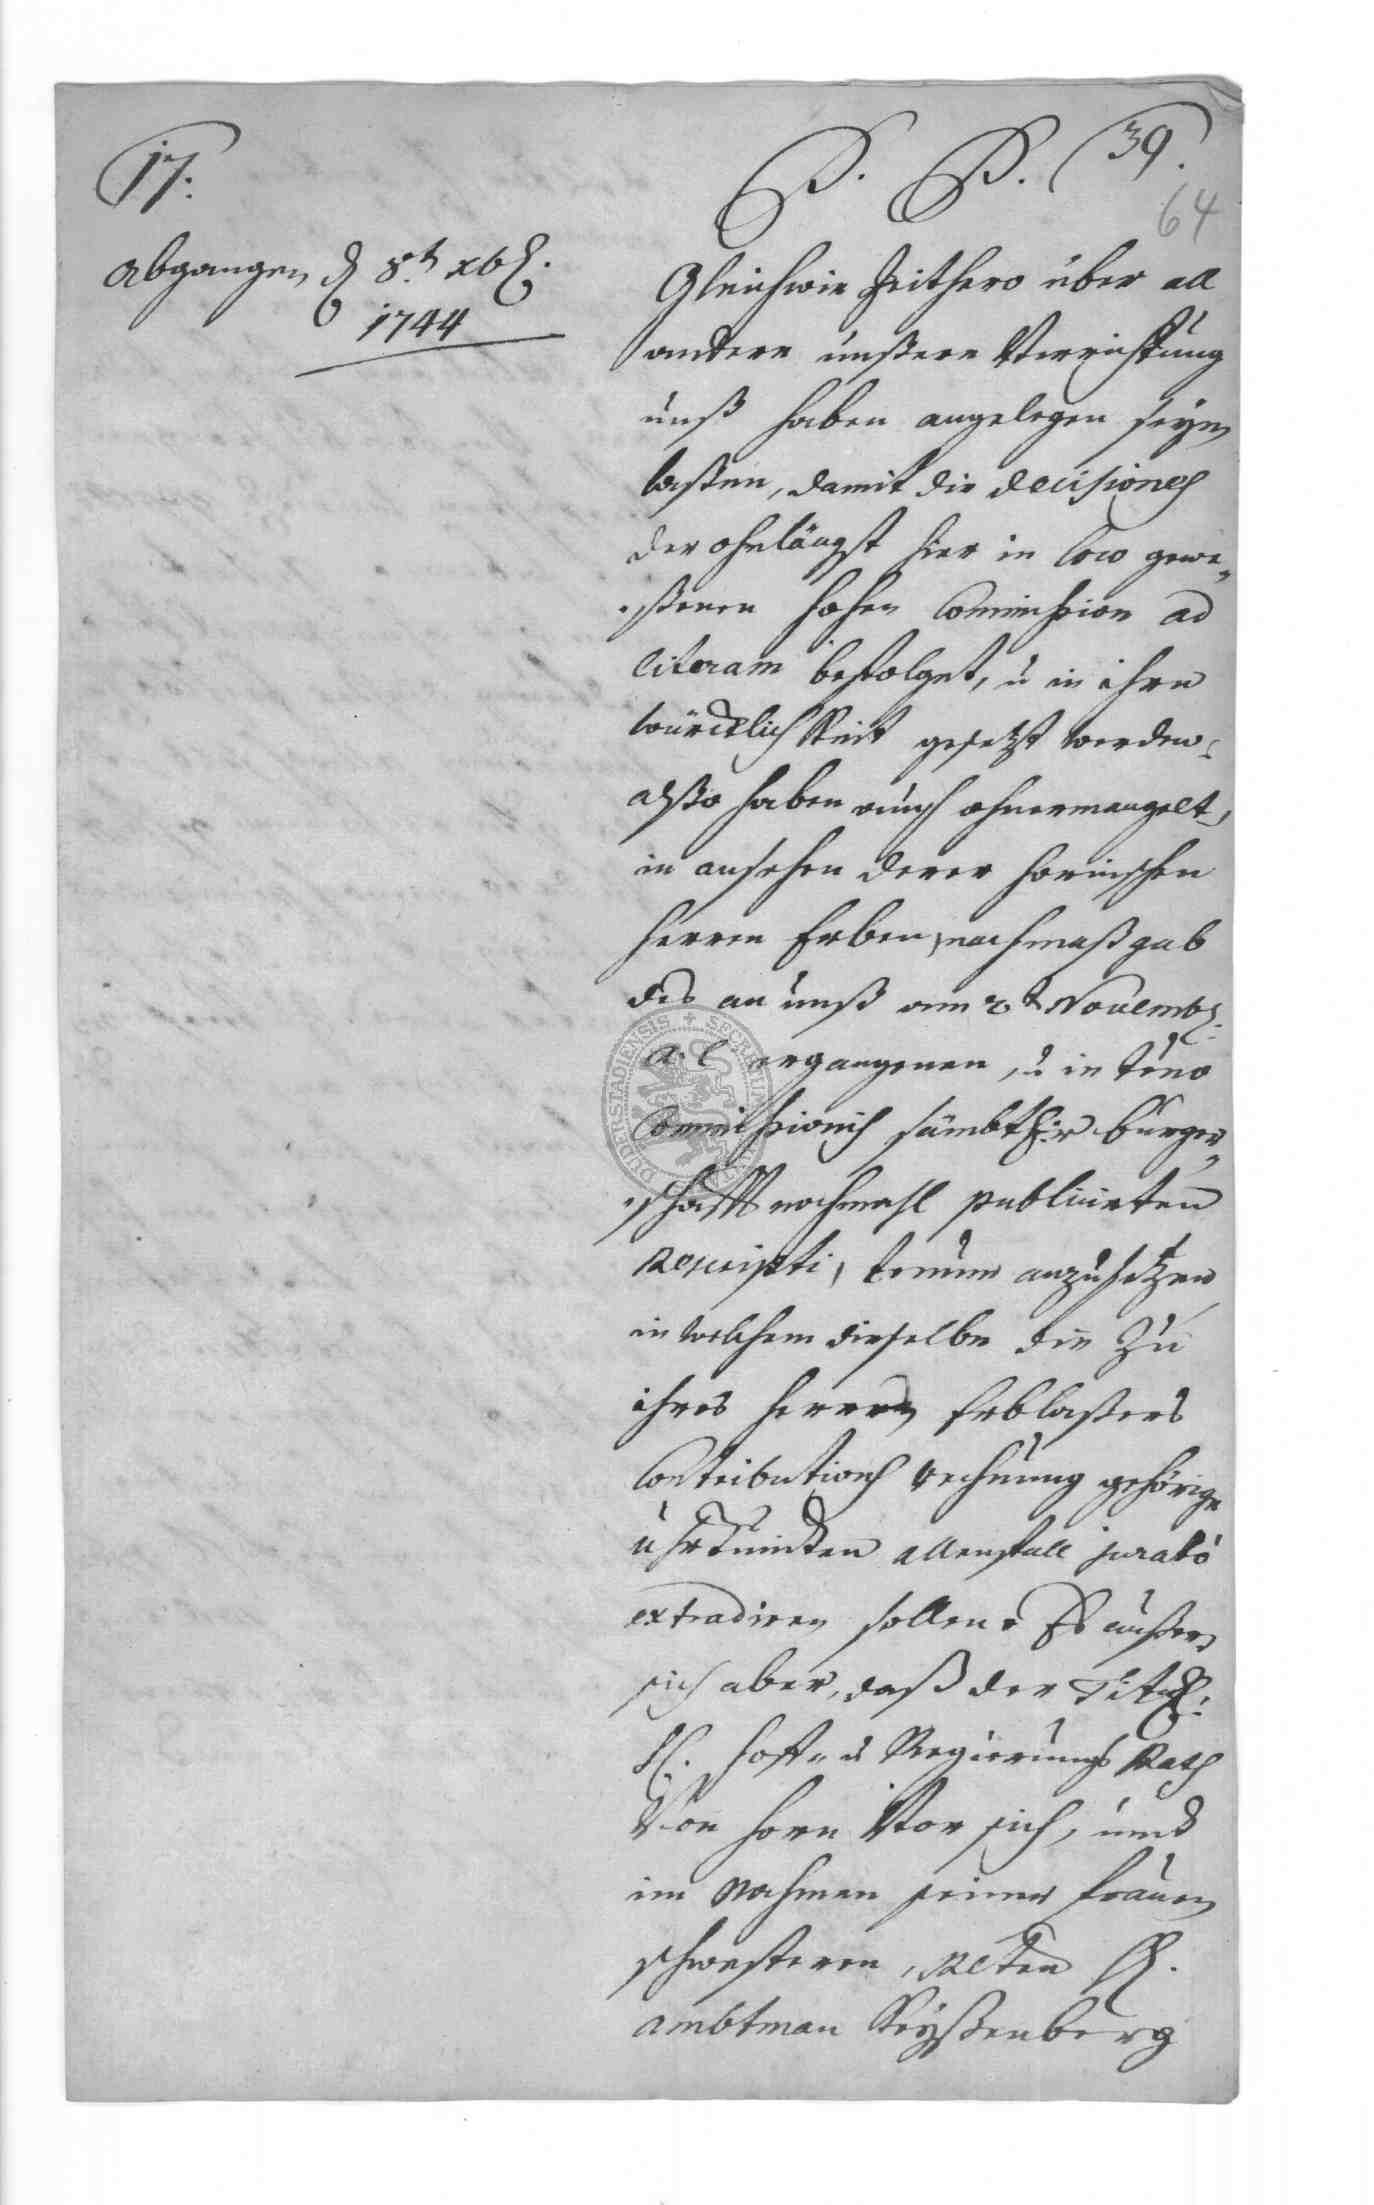 17.
P. P. 39.
64
abgangen d 8t. xbr.
1744
Gleichwie Zeithero über all
andere unßere Verrichtung
unß haben angelegen seyn
laßen, damit die decisiones
der ohnlängst hier in loco gewe„
„ßenen hohen Commission ad
literam befolget, u in ihre
würcklichkeit gesetzt werden,
alßo haben auch ohnermangelt,
in ansehen derer Hornischen
Herren Erben, nachmaßgab
des an unß vom 2t Novembr.
a. c. ergangenen, u in termino
Commissionis sämbtlicher bürger„
„schafft nochmahl publicirten
Rescripti, termin anzusetzen
in welchem dieselbe die Zu
ihres Herren Erblaßers
Contributions rechnung gehörige
uhrkunden allenfalls jurato
extradiren sollen. Es äußert
sich aber, daß der Titul:
H. Hoff- u Regierungs Rath
Von Horn Vor sich, und
im Nahmen seiner Frauen
schwesteren, H.
ambtman Keyßenberg
SECRETUM DUDERSTADIENSIS